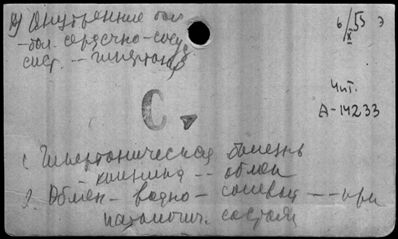 14) Внутренние бол
- бол. сердечно-сосуд
сист. -- гипертон
6/X 55 э
Чит.
А-14233
С
1. Гипертоническая болезнь
клиника -- обмен
2. Обмен - водно - солевой -- при
патологич. состоян